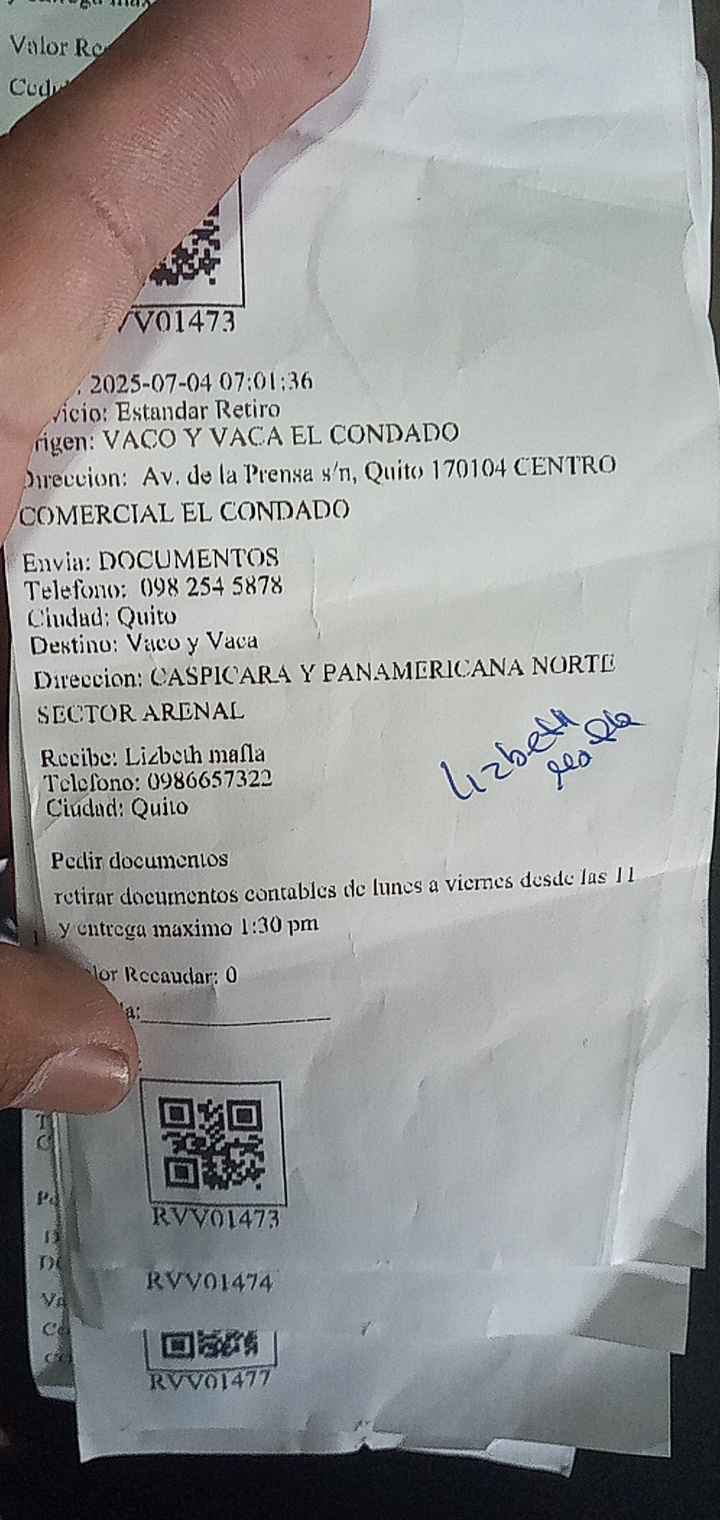 Valor Re
Cedu
VV01473
: 2025-07-04 07:01:36
vicio: Estandar Retiro
rigen: VACO Y VACA EL CONDADO
Direccion: Av. de la Prensa s/n, Quito 170104 CENTRO
COMERCIAL EL CONDADO
Envia: DOCUMENTOS
Telefono: 098 254 5878
Ciudad: Quito
Destino: Vaco y Vaca
Direccion: CASPICARA Y PANAMERICANA NORTE
SECTOR ARENAL
Recibe: Lizbeth mafla
Telefono: 0986657322
Ciudad: Quito
Lizbeth
Mafla
Pedir documentos
retirar documentos contables de lunes a viernes desde las 11
y entrega maximo 1:30 pm
lor Recaudar: 0
a:
RVV01473
RVV01474
RVV01477